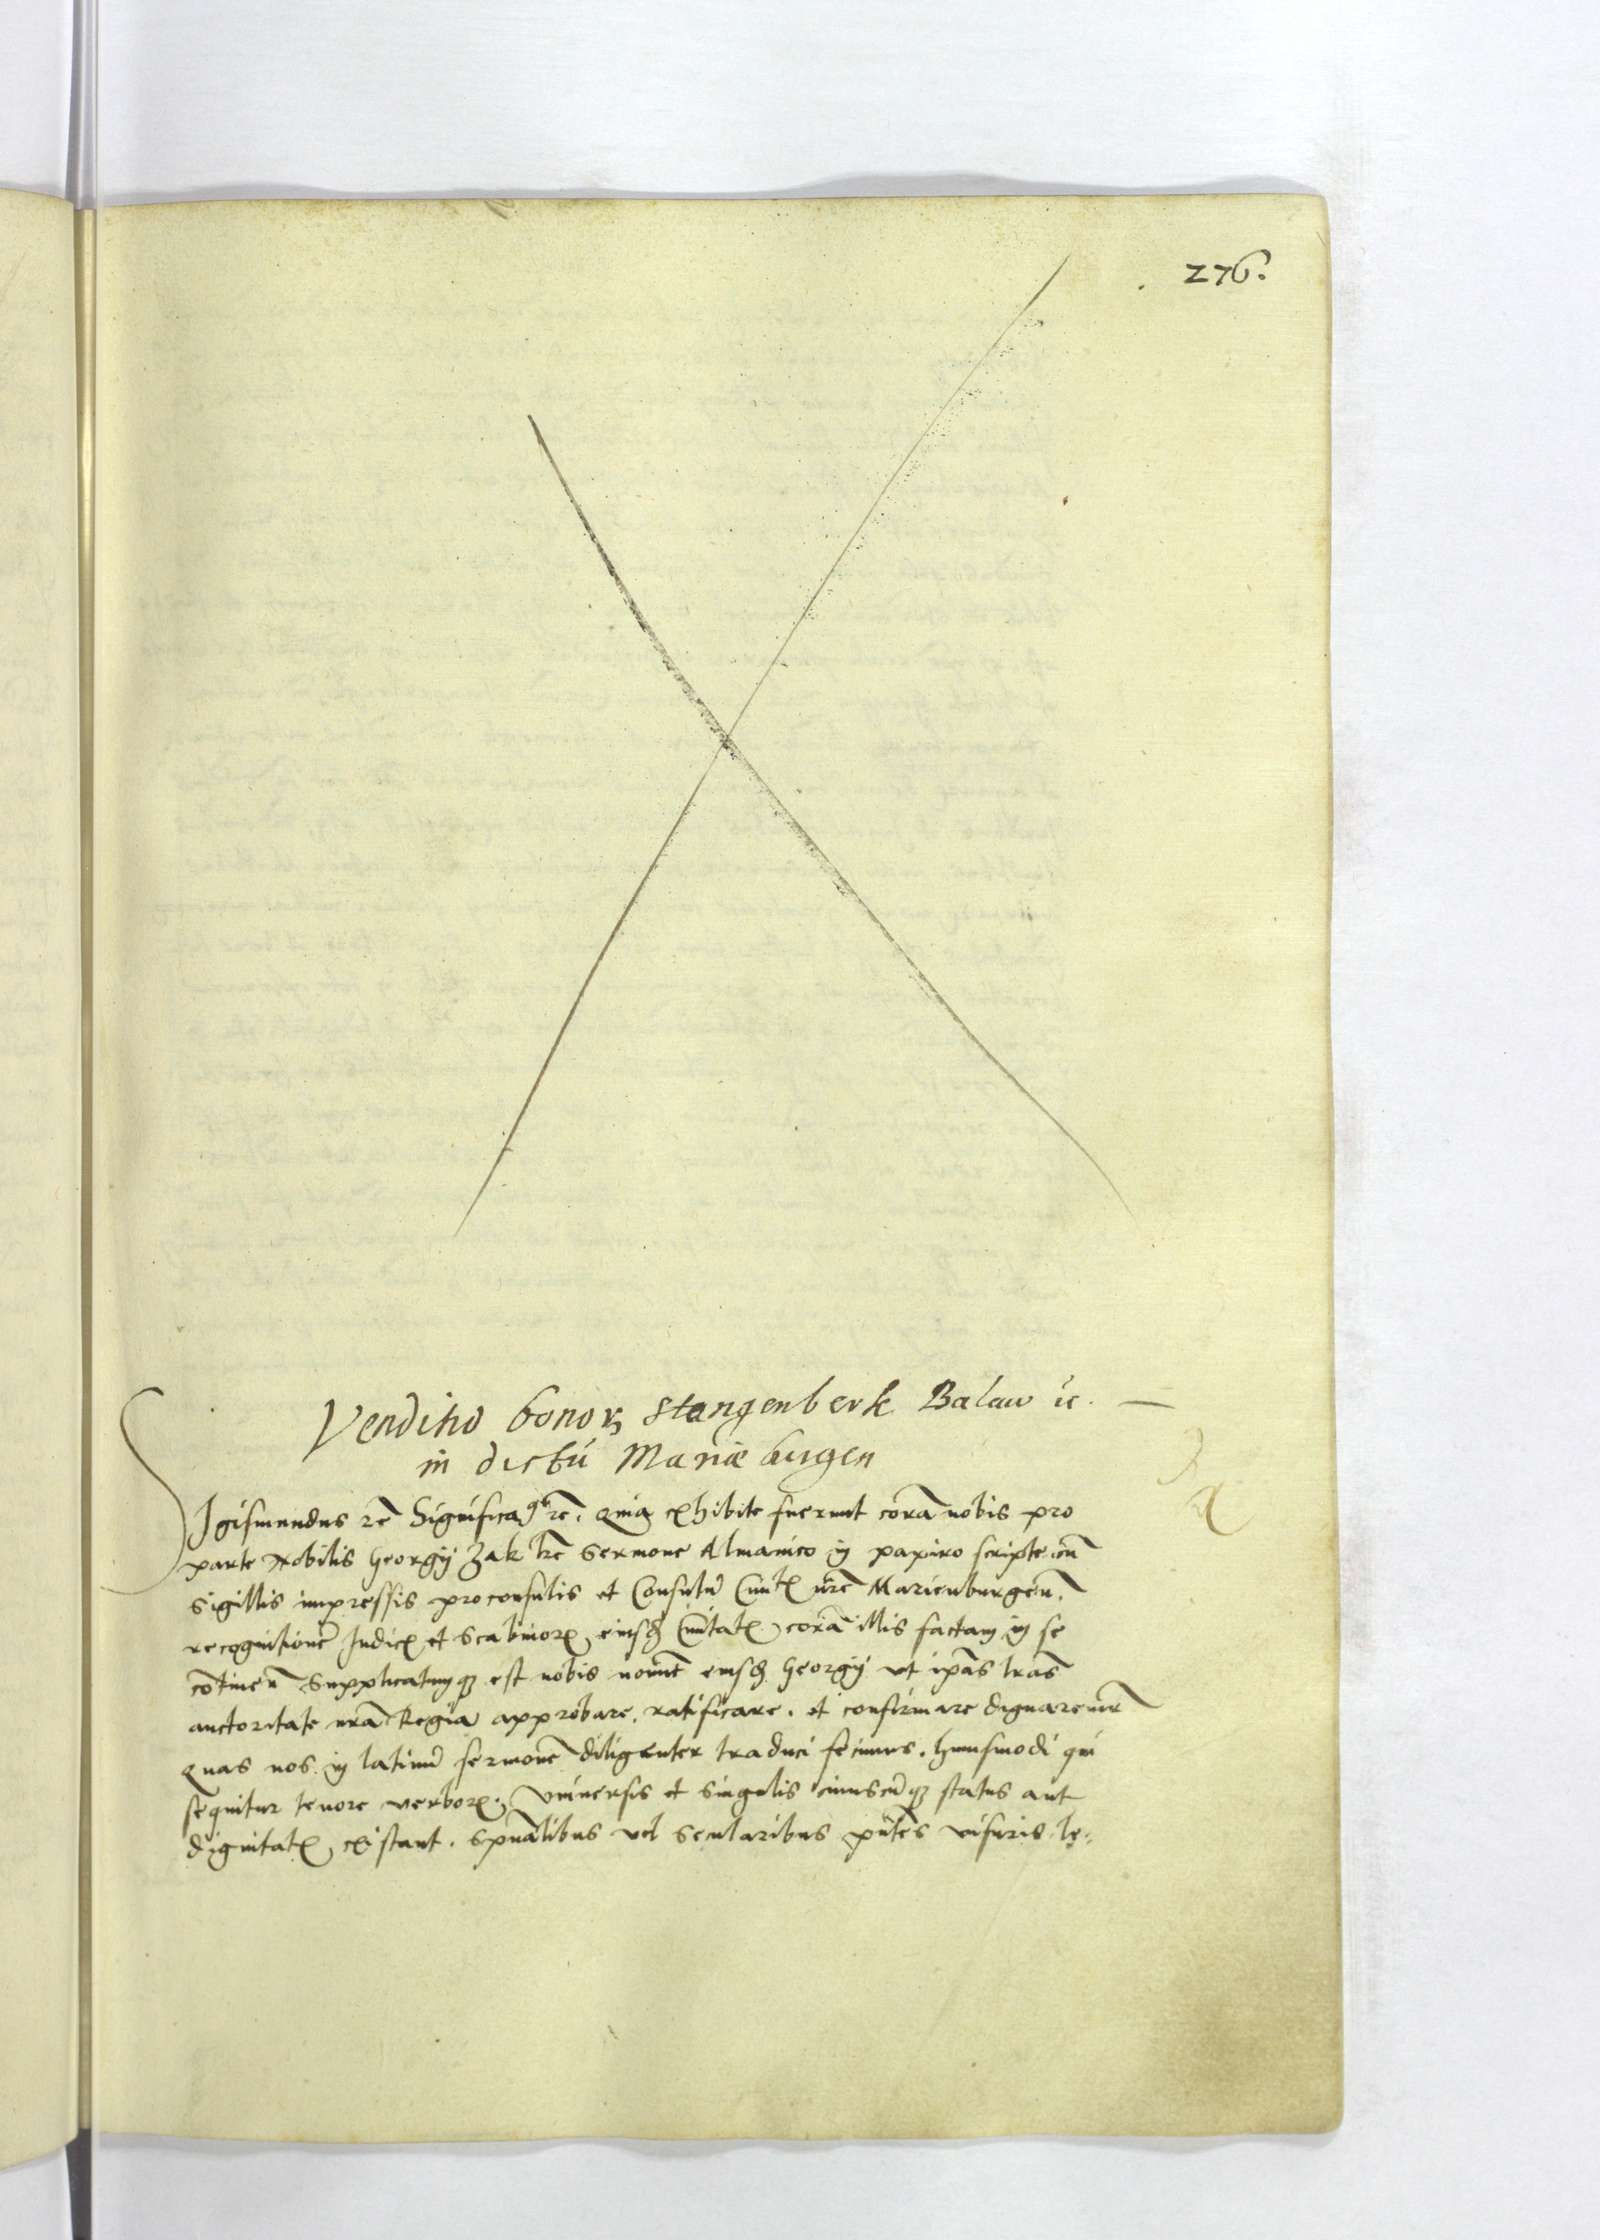 276.
Venditio bonorꝫ Stangenberk Balaw ꝛc.
in dictū Mariæburgen
Sigismundus rē Significaꝫ rē. Quia exhibite fuerunt corā nobis pro
parte Nobilis Georgij Zak lrē Sermone Almanico in papiro scripte cū
sigillis impressis proconsulis et Consulū Ciuitꝭ nrē Marienburgeñ.
recognitionē Judicꝭ et Scabinorꝭ eiusdꝫ Ciuitatꝭ corā illis factam in se
cōtineñ Supplicatumqꝫ est nobis noīne eiusdꝫ Georgij vt ipās lrās
auctoritate nrā Regia approbare, ratificare, et confirmare dignaremr̄
Quas nos in latinū sermonē diligenter traduci fecimus, huiusmodi qui
sequitur tenore verborꝭ. Vniuersis et singulis cuiuscūqꝫ status aut
dignitatꝭ existant, Spūalibus vel Secularibus pñtes visuris le=